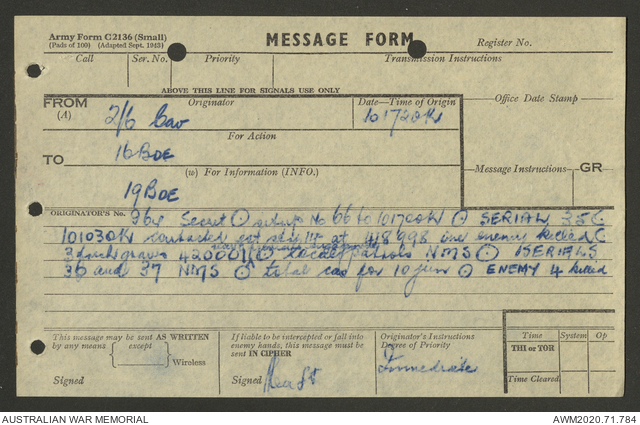 Army Form C2136 (Small)
(Pads of 100) (Adapted Sept. 1943)
MESSAGE FORM
Register No.
Call
Ser. No.
Priority
Transmission Instructions
ABOVE THIS LINE FOR SIGNALS USE ONLY
FROM
(A)
Originator
2/6 Cav
Date—Time of Origin
101720K
Office Date Stamp
For Action
TO
16 BDE
(w) For Information (INFO.)
Message Instructions
GR
19 BDE
ORIGINATOR'S No.
Secret ⊙ No 66 to 101700K ⊙ SERIAL 35C
101030K contacted at 418998 one enemy killed
3 graves 420001 patrols NMS ⊙ SERIALS
36 and 37 NMS ⊙ total cas for 10 Jun ⊙ ENEMY 4 killed
This message may be sent AS WRITTEN
by any means except
Wireless
Signed
If liable to be intercepted or fall into
enemy hands, this message must be
sent IN CIPHER
Signed
Originator's Instructions
Degree of Priority
Immediate
Time
System
Op
THI or TOR
Time Cleared
AUSTRALIAN WAR MEMORIAL
AWM2020.71.784